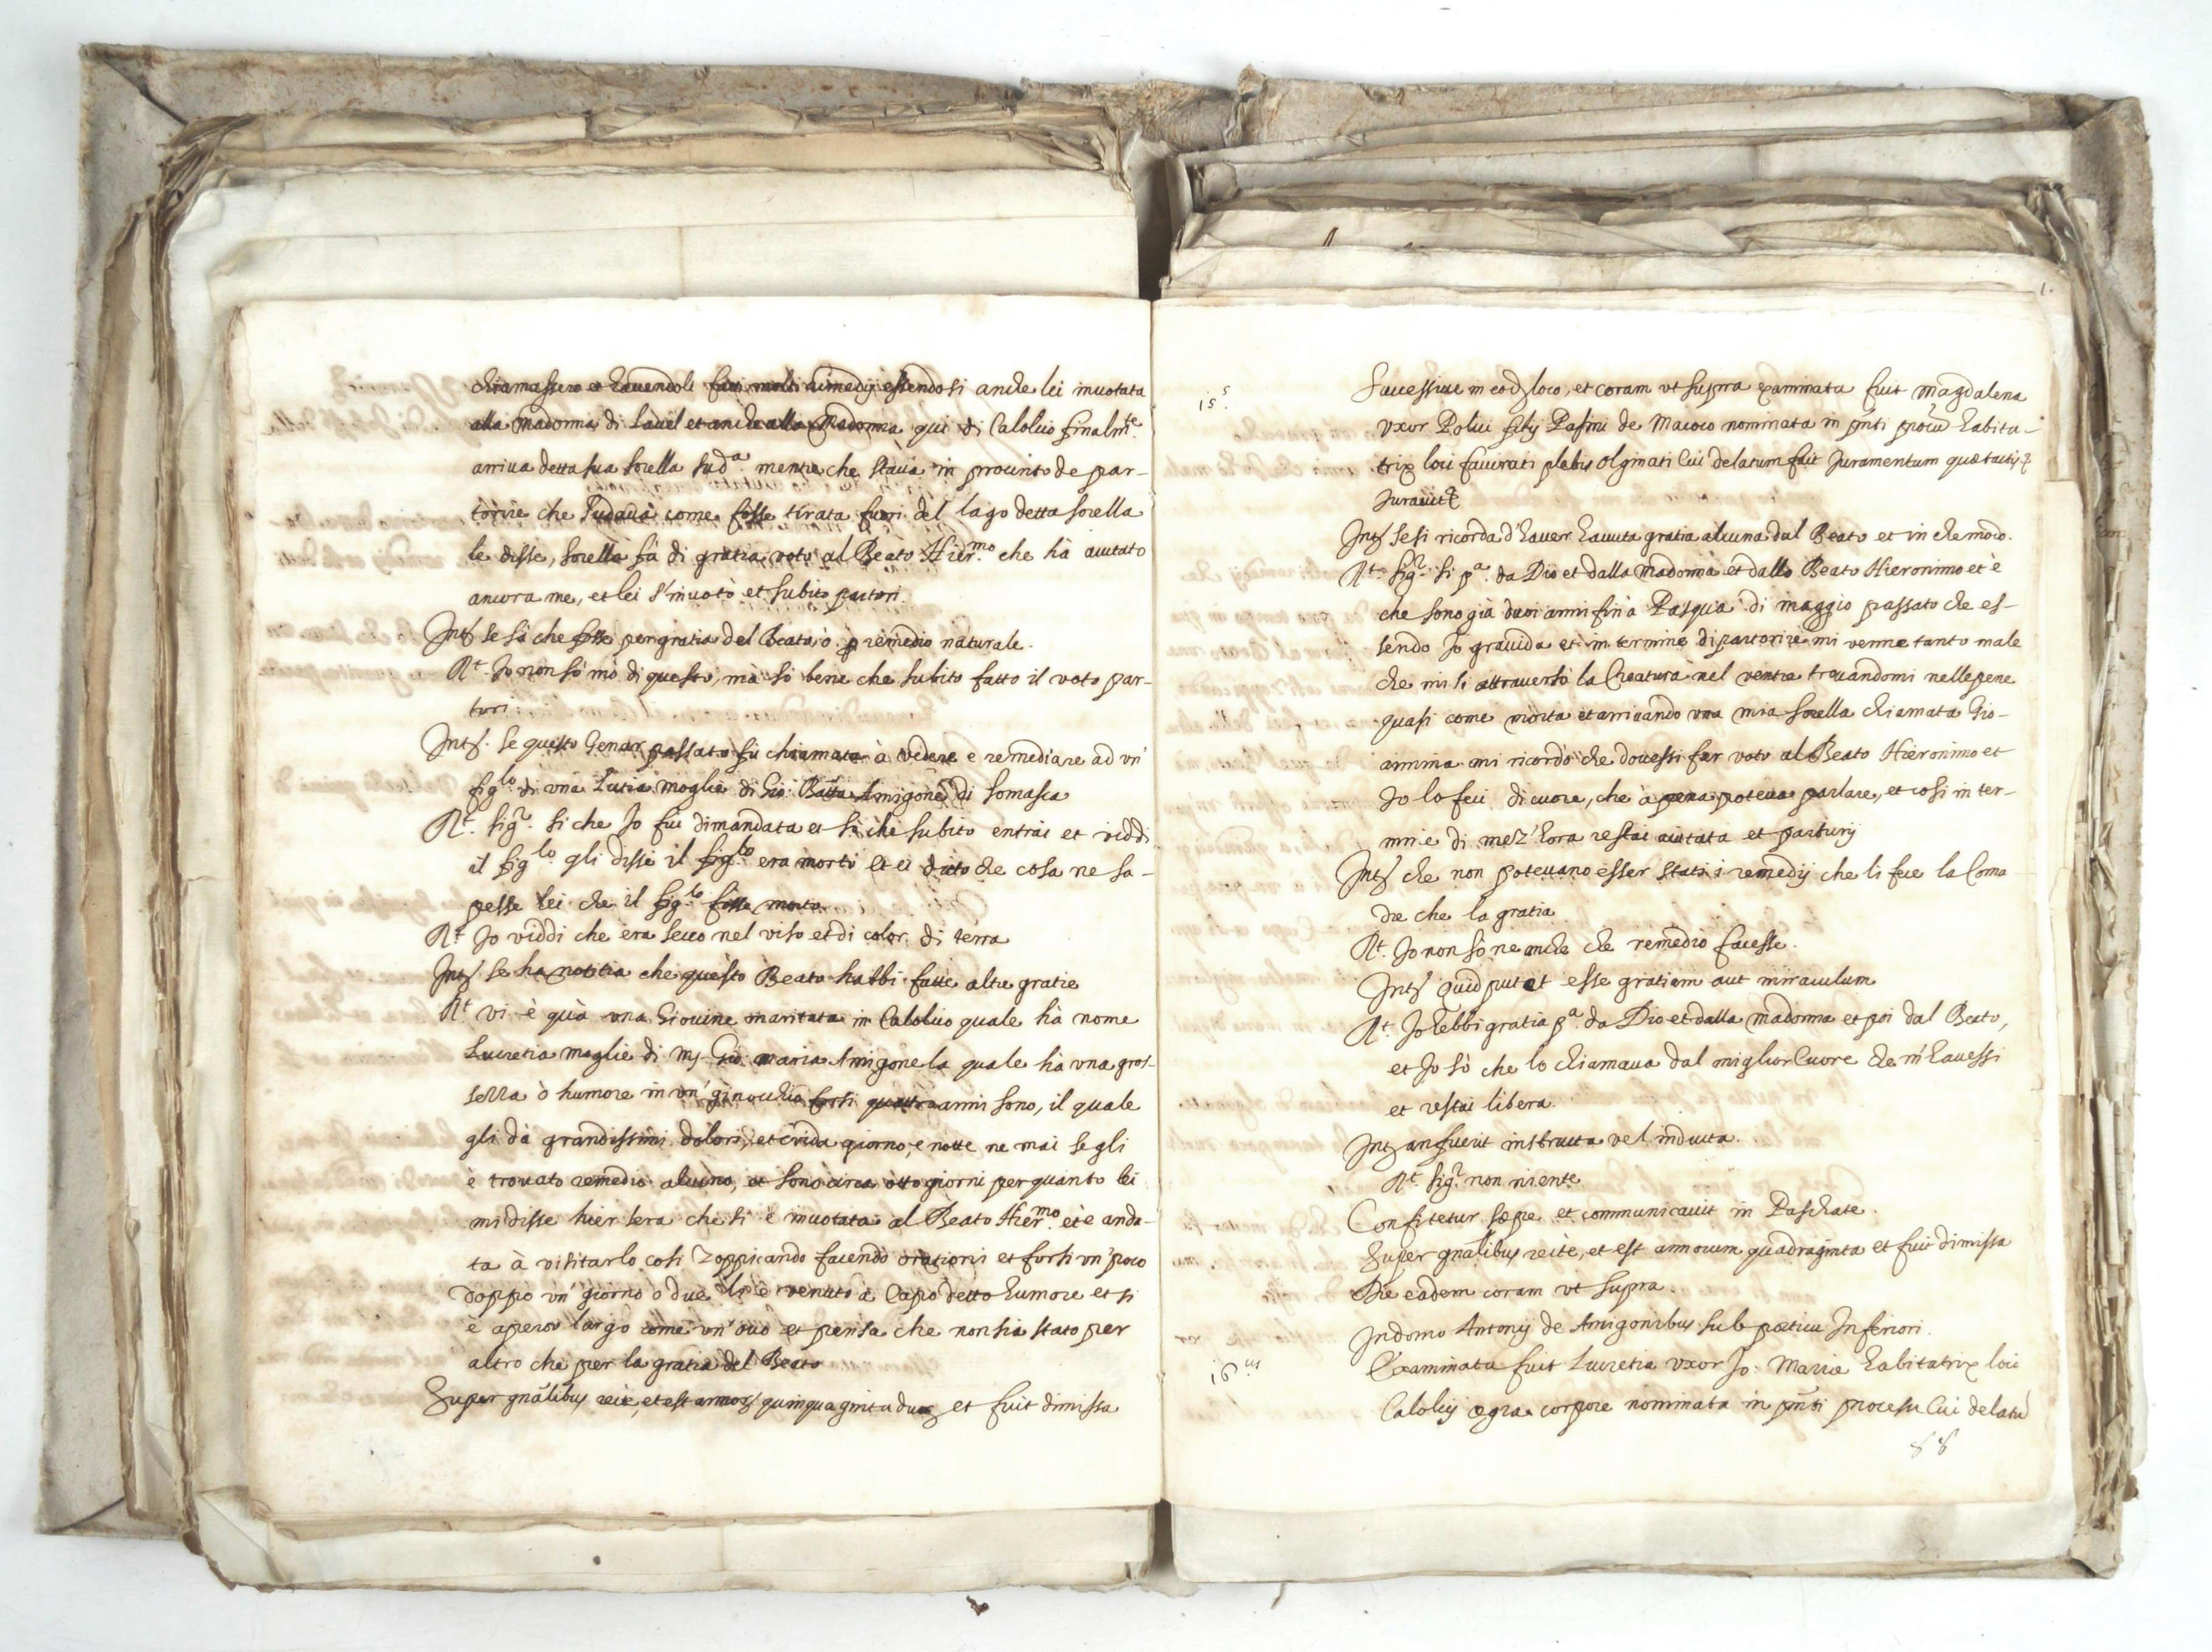 chiamassero et havendoli fati molti rimedij essendosi anche lei invotata
alla Madonna di Lavel et anche alla Madonna qui di Calolcio finalm.te
arriva detta sua sorella sud.a mentre che stava in procinto de par-
torire che sudava come fosse tirata fuori del lago detta sorella
le disse, sorella fà di gratia voto al Beato Hier.mo che hà aiutato
ancora me, et lei s'invotò et subito partori
Int.s se sà che fosse per gratia del Beato ò p remedio naturale.
R.t Io non sò mò di questo, mà sò bene che subito fatto il voto par-
turì.
Int.s se questo Genar passato fù chiamata à vedere e remediare ad un'
fig.lo di una Lutia moglie di Gio: Batta Amigone di Somasca
R.t Sig.r si che Io fui dimandata et si che subito entrai et viddi
il fig.lo gli dissi il fig.lo era morto et ei ditto che cosa ne sa-
pesse lei che il fig.lo fosse morto
R.t Io viddi che era secco nel viso et di color di terra
Int.s se ha notitia che questo Beato habbi fatte altre gratie
R.t vi è quà una Giovine maritata in Calolcio quale hà nome
Lucretia moglie di Ms. Gio: Maria Amigone la quale hà una gros-
sezza ò humore in un' ginocchio forsi quattro anni sono, il quale
gli dà grandissimi dolori, et crida giorno, e notte ne mai se gli
è trovato remedio alcuno, et sono circa otto giorni per quanto lei
mi disse hier sera che si è invotata al Beato Hier.mo et è anda-
ta à visitarlo cosi zoppicando facendo orationi et forsi un' poco
doppo un' giorno ò due gli è venuto à capo detto humore et si
è aperto largo come un' ovo et pensa che non sia stato per
altro che per la gratia del Beato
Super gnalibus recte, et est annor. quinquaginta duor. et fuit dimissa
1.
15.s
Successive in eod. loco, et coram ut supra examinata fuit Magdalena
uxor Polini filij Pasini de Macoco nominata in pnti procu habita-
trix loci Favirati plebis Olginati Cui delatum fuit Juramentum quae tactis
Juravit
Int.s se si ricorda d'haver havuta gratia alcuna dal Beato et in che modo.
R.t Sig.r si p.a da Dio et dalla Madonna et dallo Beato Hieronimo et è
che sono già duoi anni fin'a Pasqua di maggio passato che es-
sendo Io gravida et in termine di partorire mi venne tanto male
che mi si attraversò la Creatura nel ventre trovandomi nelle pene
quasi come morta et arrivando una mia sorella chiamata Gio-
annina mi ricordò che dovessi far voto al Beato Hieronimo et
Io lo feci di cuore, che à pena poteva parlare, et cosi in ter-
mine di mez' hora restai aiutata et parturij
Int.s che non potevano esser stati i remedij che li fece la Coma-
dre che la gratia
R.t Io non sò ne anche che remedio facesse.
Int.s quid putet esse gratiam aut miraculum
R.t Io hebbi gratia p.a da Dio et dalla Madonna et poi dal Beato,
et Io sò che lo chiamava dal miglior Cuore che m'havessi
et restai libera.
Int.s an fuerit instructa vel inducta.
R.t Sig.r non niente
Confitetur saepe et communicavit in Paschate.
Super gnalibus recte, et est annorum quadraginta et fuit dimissa
Die eadem coram ut supra.
In domo Antonij de Amigonibus sub porticu Inferiori.
16.us
Examinata fuit Lucretia uxor Jo: Mariae habitatrix loci
Calolcij aegra corpore nominata in pnti processu Cui delatu
88